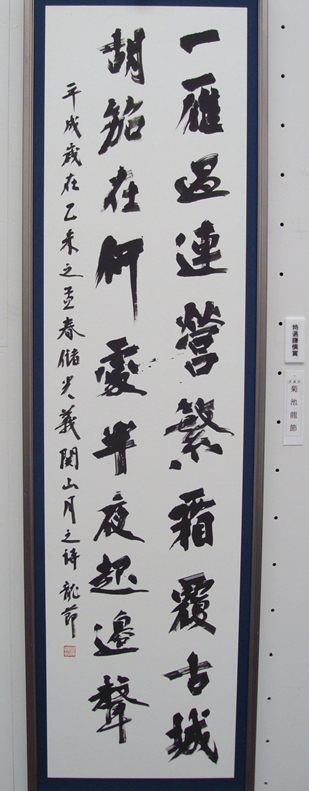 一雁過連營繁霜覆古城
胡笳在何處半夜起邊聲
平成歳在乙未之孟春儲光羲関山月之詩 龍節
特選謙慎賞
菊池龍節